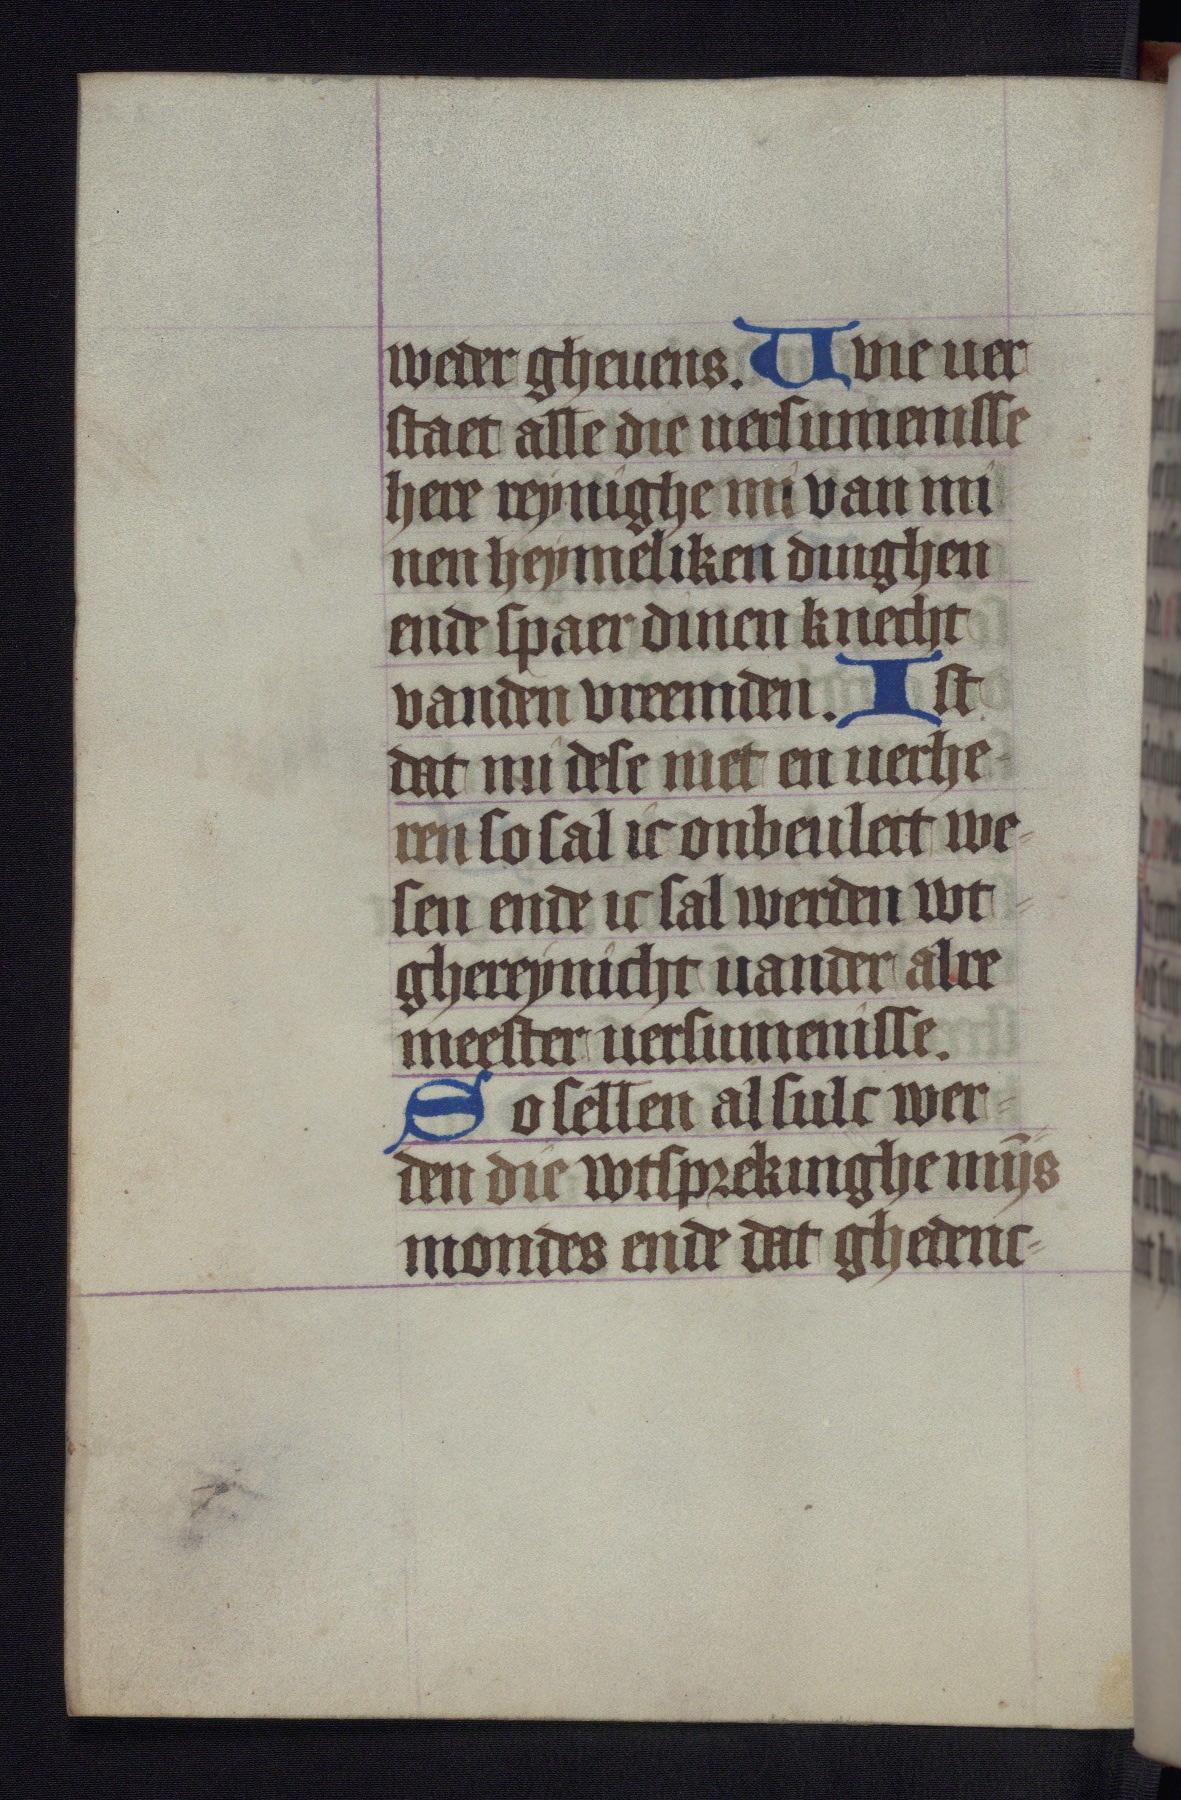 weder gheuens. Uvie uer
staet alle die uersumenisse
here reynighe mi van mi
nen heymeliken dinghen
ende spaer dinen knecht
vanden vreemden. Ist
dat mi dese niet en uerhe-
ren so sal ic onbeulect we-
sen ende ic sal werden wt-
ghereynicht uander alre
meester uersumenisse.
So sellen al sulc wer-
den die wtsprekinghe mijs
mondes ende dat ghedenc-